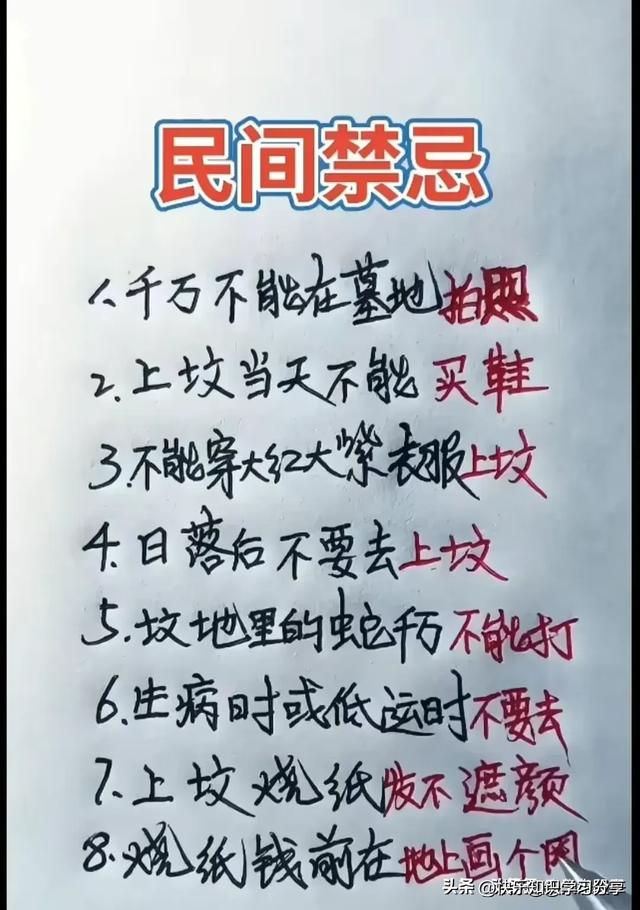 民间禁忌
1.千万不能在墓地拍照
2.上坟当天不能买鞋
3.不能穿大红大紫衣服上坟
4.日落后不要去上坟
5.坟地里的蛇千万不能打
6.生病时或低运时不要去
7.上坟烧纸发不遮颜
8.烧纸钱前在地上画个
头条 @快乐知识学习分享